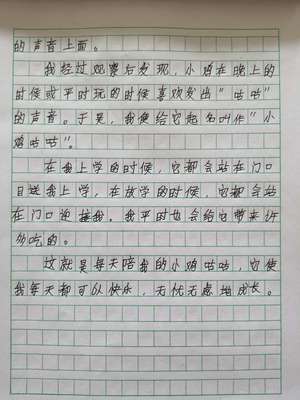 的声音上面。
我经过观察后发现，小鸡在晚上的
时候或平时玩的时候喜欢发出“咕咕”
的声音。于是，我便给它起名叫作“小
鸡咕咕”。
在我上学的时候，它都会站在门口
目送我上学，在放学的时候，它都会站
在门口迎接我。我平时也会给它带来许
多吃的。
这就是每天陪我的小鸡咕咕，它使
我每天都可以快乐，无忧无虑地成长。